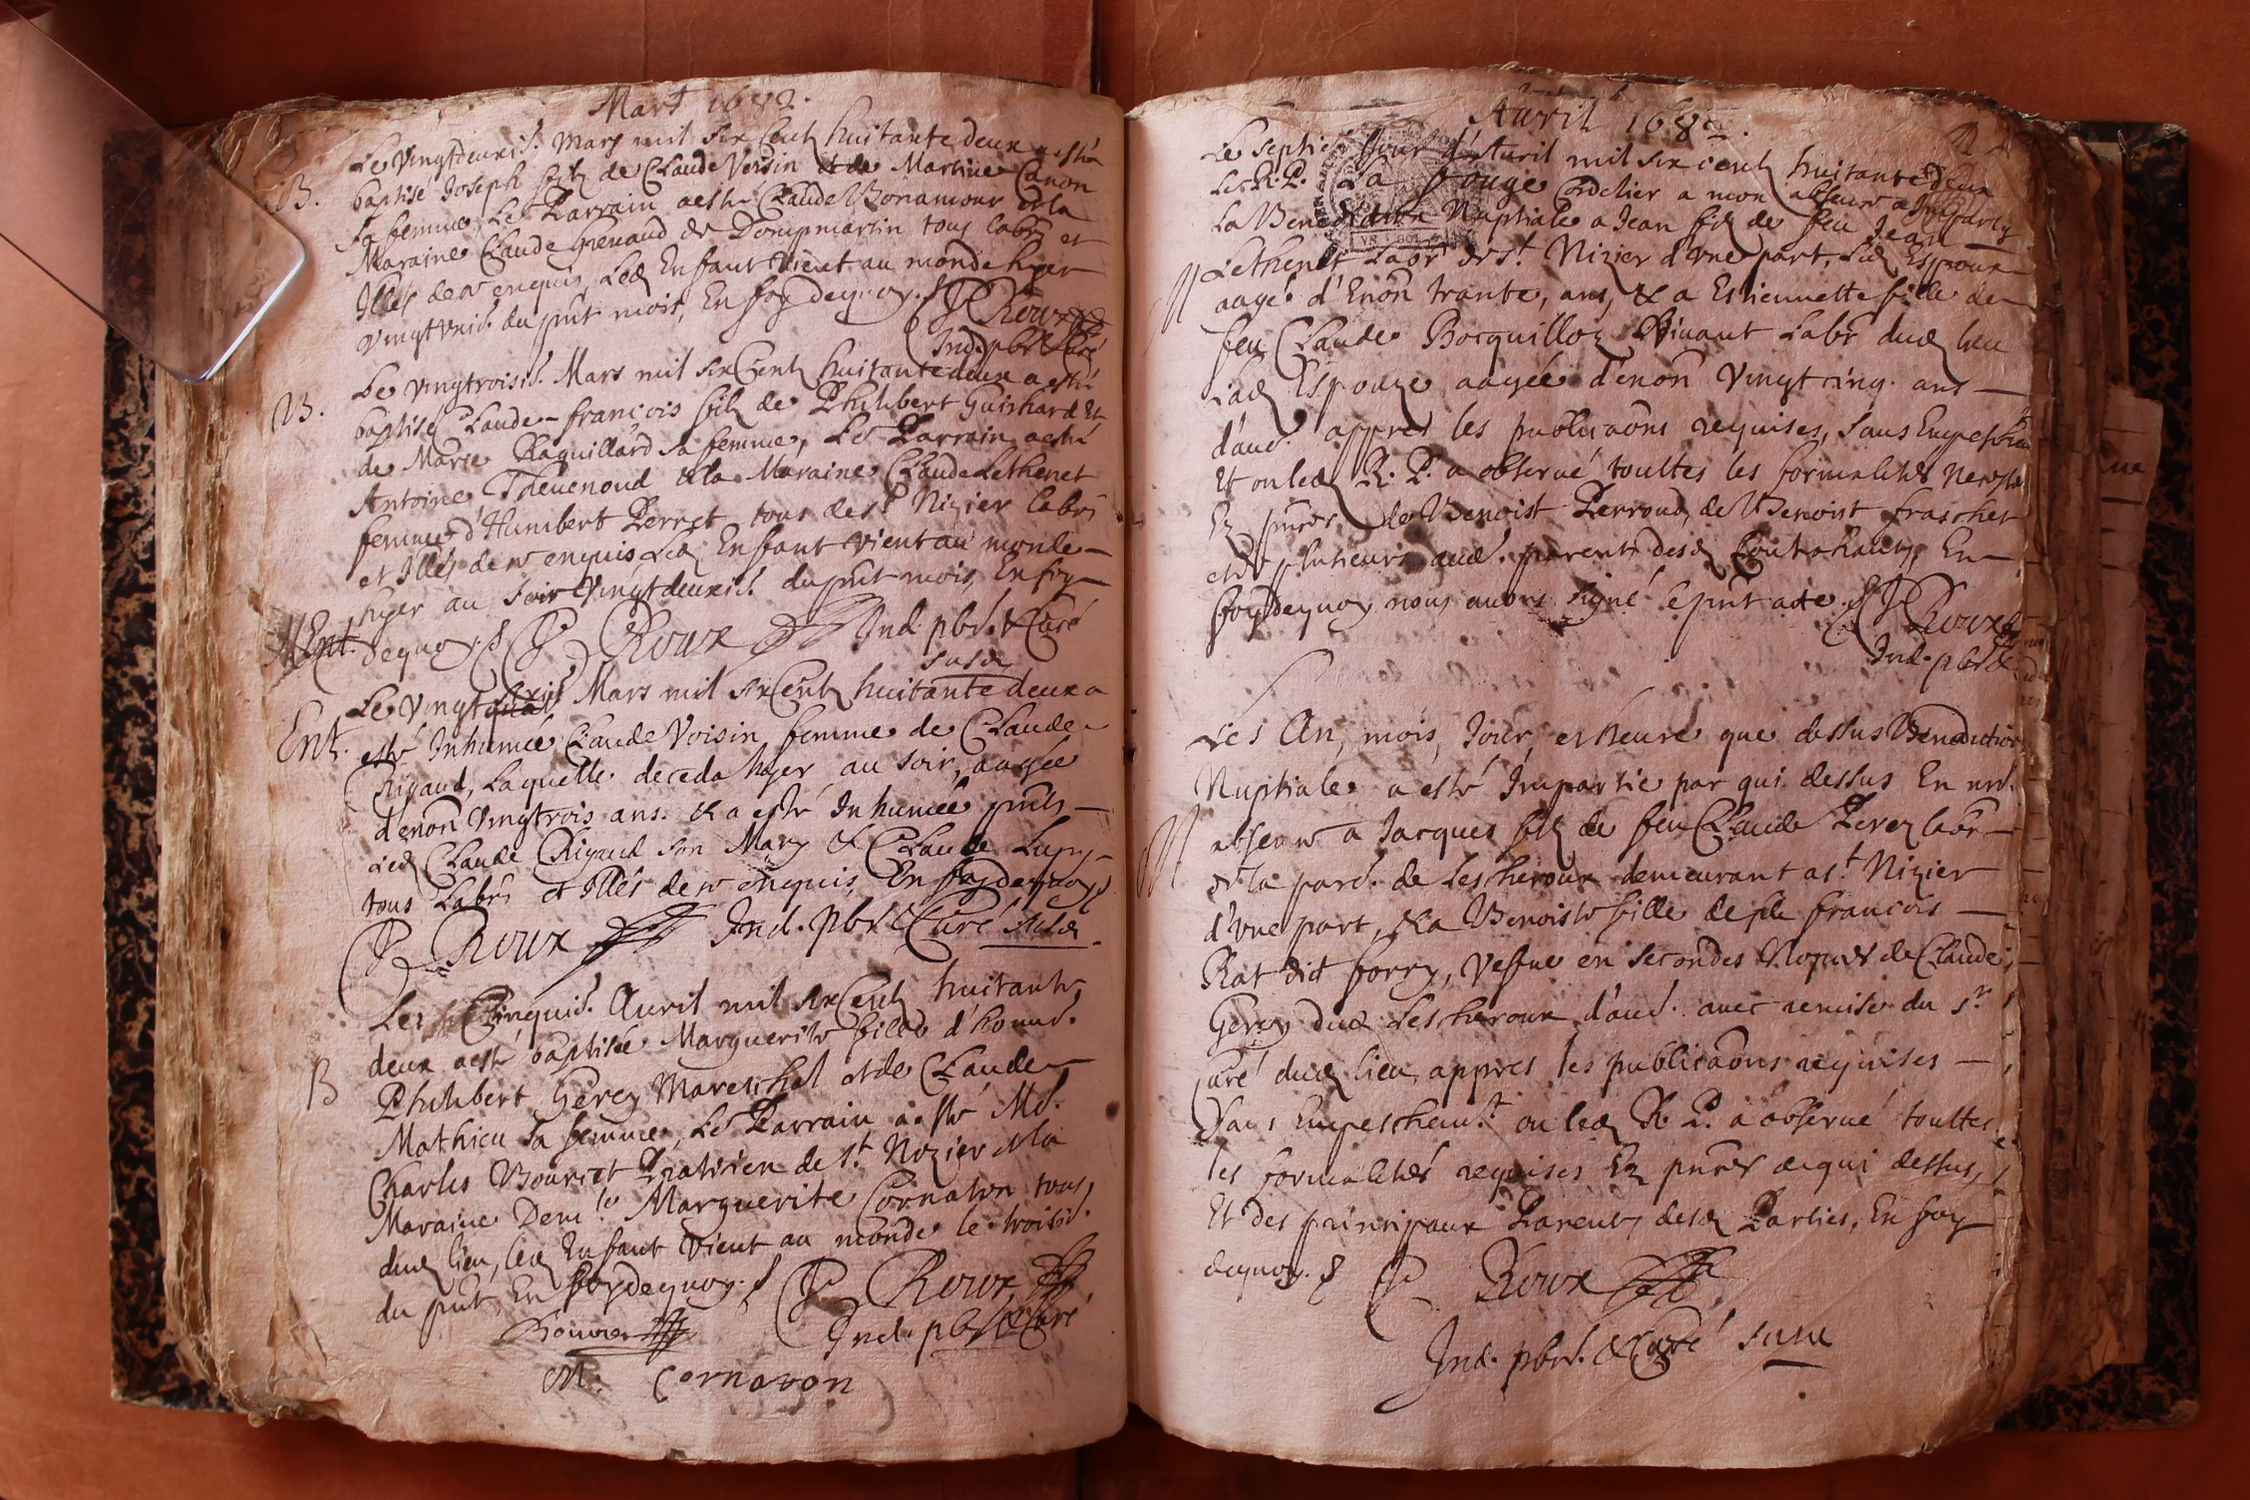 Mars 1682.
Le vingtdeuxie. Mars mil six cent huitante deux a esté
B. baptisé Joseph filz de Claude Voisin et de Martine Canon
sa femme, Le Parrain a esté Claude Bonamour et la
Maraine Claude Grenaud de Dompmartin tous labrs et
Illés de ce enquis, Led. Enfant vient au monde hyer
vingtunie. du pnt mois, En foy de quoy. P Roux
Ind. pbre & Curé
Le vingtroisie. Mars mil six Cent huitante deux a esté
B. baptisé Claude-françois filz de Philibert Guichard et
de Marie Raquillard sa femme, Le Parrain a esté
Antoine Theuenoud & la Maraine Claude Lethenet
femme d'Humbert Perret tous de st Nizier labrs
et Illés de ce enquis Led. Enfant vient au monde
hyer au soir vingtdeuxie. du pnt mois, En foy
de quoy. P Roux Ind. pbre. & Curé
susd.
Ent. Le vingt Mars mil six Cent huitante deux a
esté Inhumée Claude Voisin femme de Claude
Rigaud, Laquelle deceda hyer au soir, aagée
d'enon vingtrois ans. & a esté Inhumée pnts
Led. Claude Rigaud son Mary & Claude
tous Labrs et Illés de ce enquis, En foy de quoy
P Roux Ind. pbre & Curé susd.
Le Cinquie. Auril mil six Cent huitante
deux a esté baptisée Marguerite fille d'honne.
B Philibert Gerey Mareschal et de Claude
Mathieu sa femme, Le Parrain a esté Me.
Charles Bouriet Praticien de st. Nizier & la
Maraine Demlle Marguerite Cornaton tous
dud. lieu, led. Enfant vient au monde le troisie.
du pnt, En foy de quoy. P Roux
Ind. pbre & Curé
M. Cornaton
Auril 1682.
Le septie. Jour d'Auril mil six cent huitante deux
Le R. P. La Cordelier a mon absence a Imparty
La Benediction Nuptiale a Jean filz de feu Jean
M Lethenet Labr de st. Nizier d'vne part, Led. Espoux
aagé d'Enon trante, ans, & a Estiennette fille de
feu Claude Bocquilloz Viuant Labr dud. lieu
Lad. Espouze aagée d'enon vingt cinq. ans
d'aue. appres les publicaons requises, sans Empeschem
Et ou led. R. P. a obserué touttes les formalités
En pnce de Benoist Perroud, de Benoist frascher
et de plusieurs aue. parents desd. Contrahants, En
foy de quoy nous auons signé le pnt acte. P Roux
Ind. pbre &
Les An, mois, Jour, et heure que dessus Benediction
Nuptiale a esté Impartie par qui dessus En mo.
M absence a Jacques filz de feu Claude Perez labr
de la parr. de Lescheroux demeurant a st. Nizier
d'vne part, & a Benoiste fille de françois
Rat dit forry, vefue en secondes Nopces de Claude
Gerey dud. Lescheroux d'aue. auec remise du sr.
curé dud. lieu, appres les publicaons requises
sans Empeschemt. ou led. R. P. a obserué touttes
les formalités requises En pnce de qui dessus,
Et des principaux Parents desd. Parties, En foy
de quoy. P Roux
Ind. pbre. & Curé susd